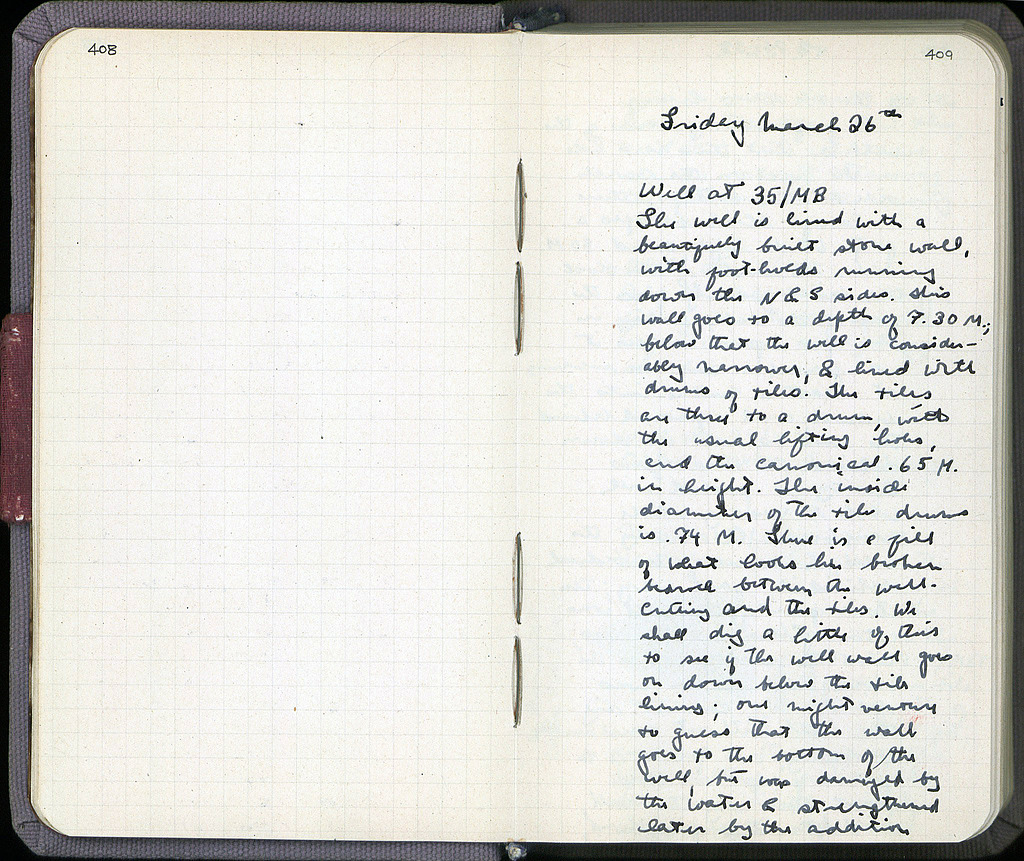 408
409
Friday March 26th
Well at 35/MB
The well is lined with a
beautifully built stone wall,
with foot-holds running
down the N & S sides. This
wall goes to a depth of 7.30 M.;
below that the well is consider-
ably narrower, & lined with
drums of tiles. The tiles
are three to a drum, with
the usual lifting holes,
and the canonical .65 M.
in height. The inside
diameter of the tile drums
is .74 M. There is a fill
of what looks like broken
between the well-
cutting and the tiles. We
shall dig a little of this
to see if the well wall goes
on down below the tile
lining; one might venture
to guess that the wall
goes to the bottom of the
well, but was damaged by
the water & strengthened
later by the addition